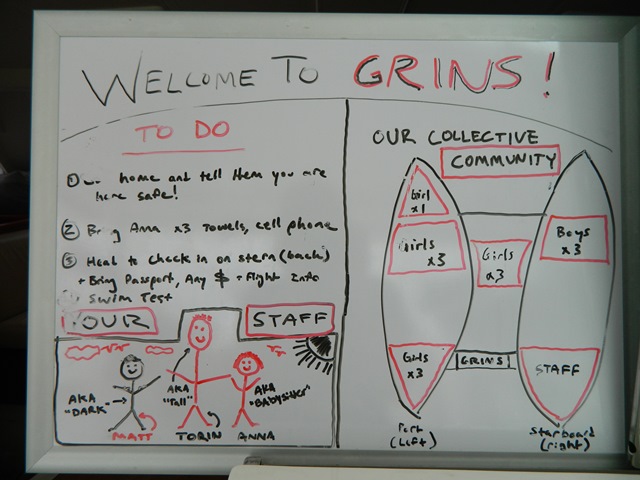 WELCOME TO GRINS!
TO DO
① home and tell them you are
here safe!
② Anna x3 Towels, cell phone
③ Head to check in on stern (back)
+ Bring Passport, Any $ + Flight Info
Swim Test
OUR STAFF
AKA
"DARK"
AKA
"Tall"
AKA
"Babysitter"
MATT TORIN ANNA
OUR COLLECTIVE
COMMUNITY
Girl
x1
Girls
x3
Girls
x3
Boys
x3
Girls
x3
GRINS!
STAFF
Port
(Left)
Starboard
(right)